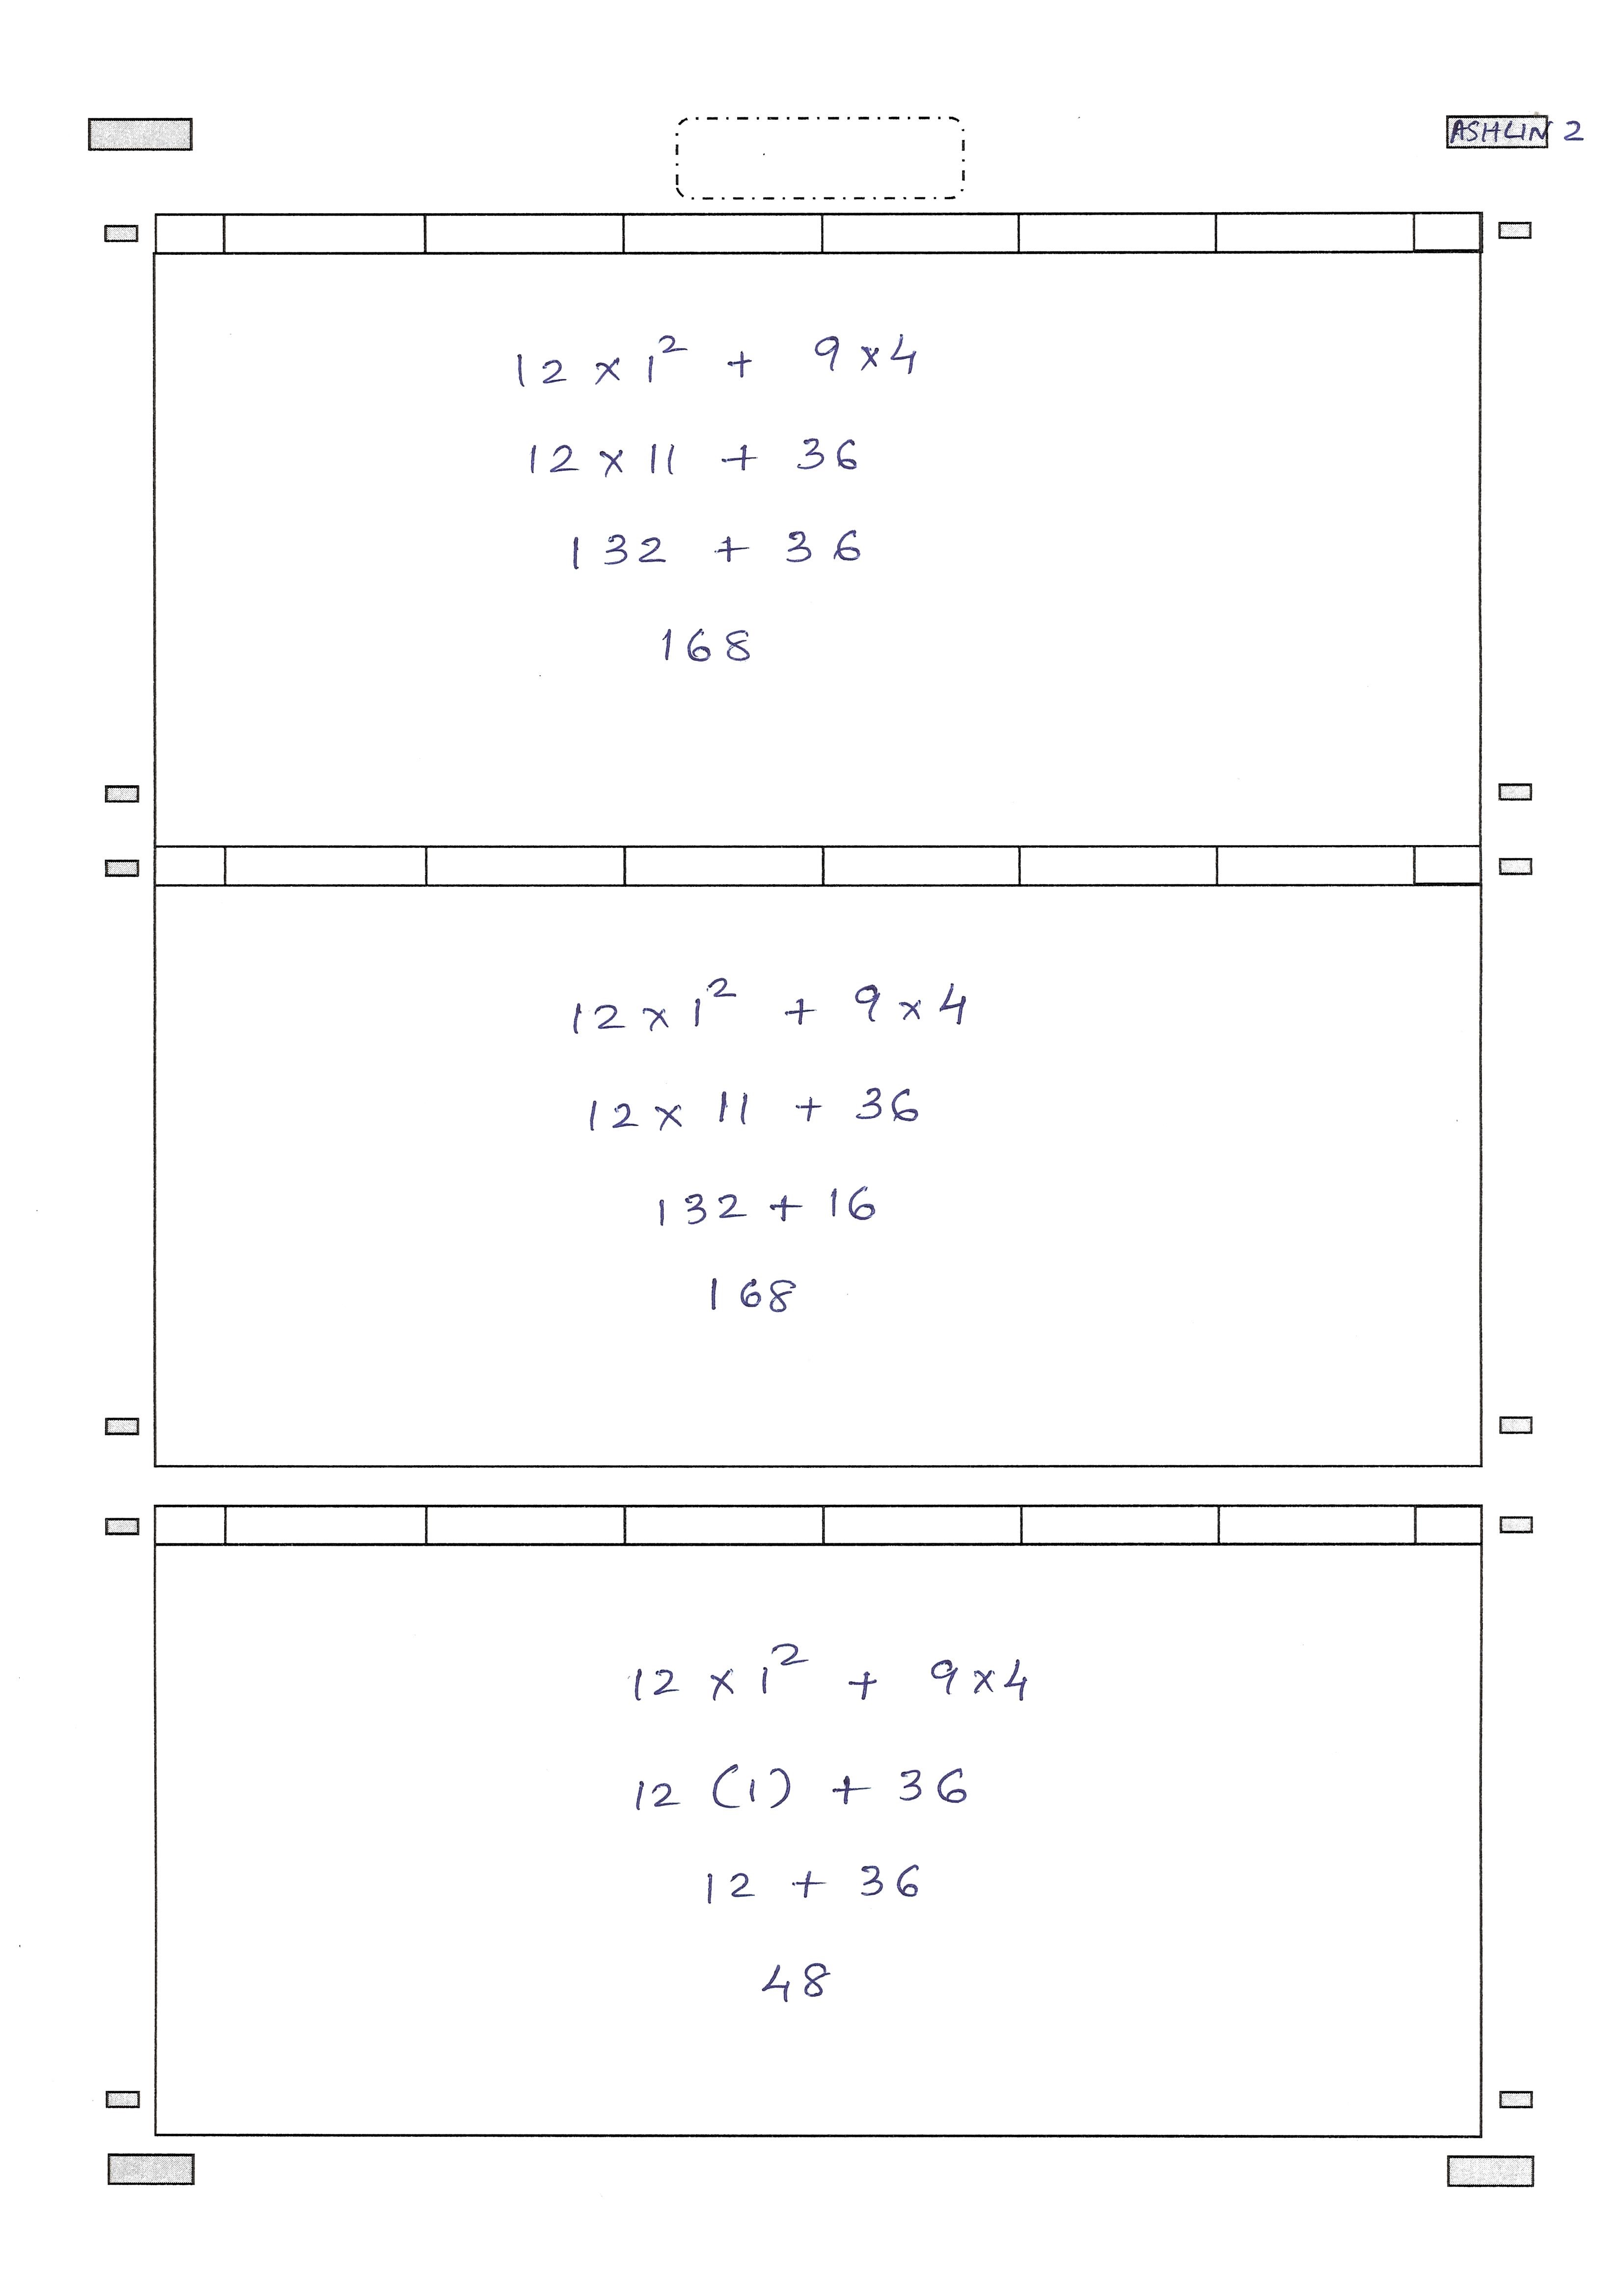 ASHLIN 2
12 × 1² + 9 × 4
12 × 11 + 36
132 + 36
168
12 × 1² + 9 × 4
12 × 11 + 36
132 + 16
168
12 × 1² + 9 × 4
12 (1) + 36
12 + 36
48